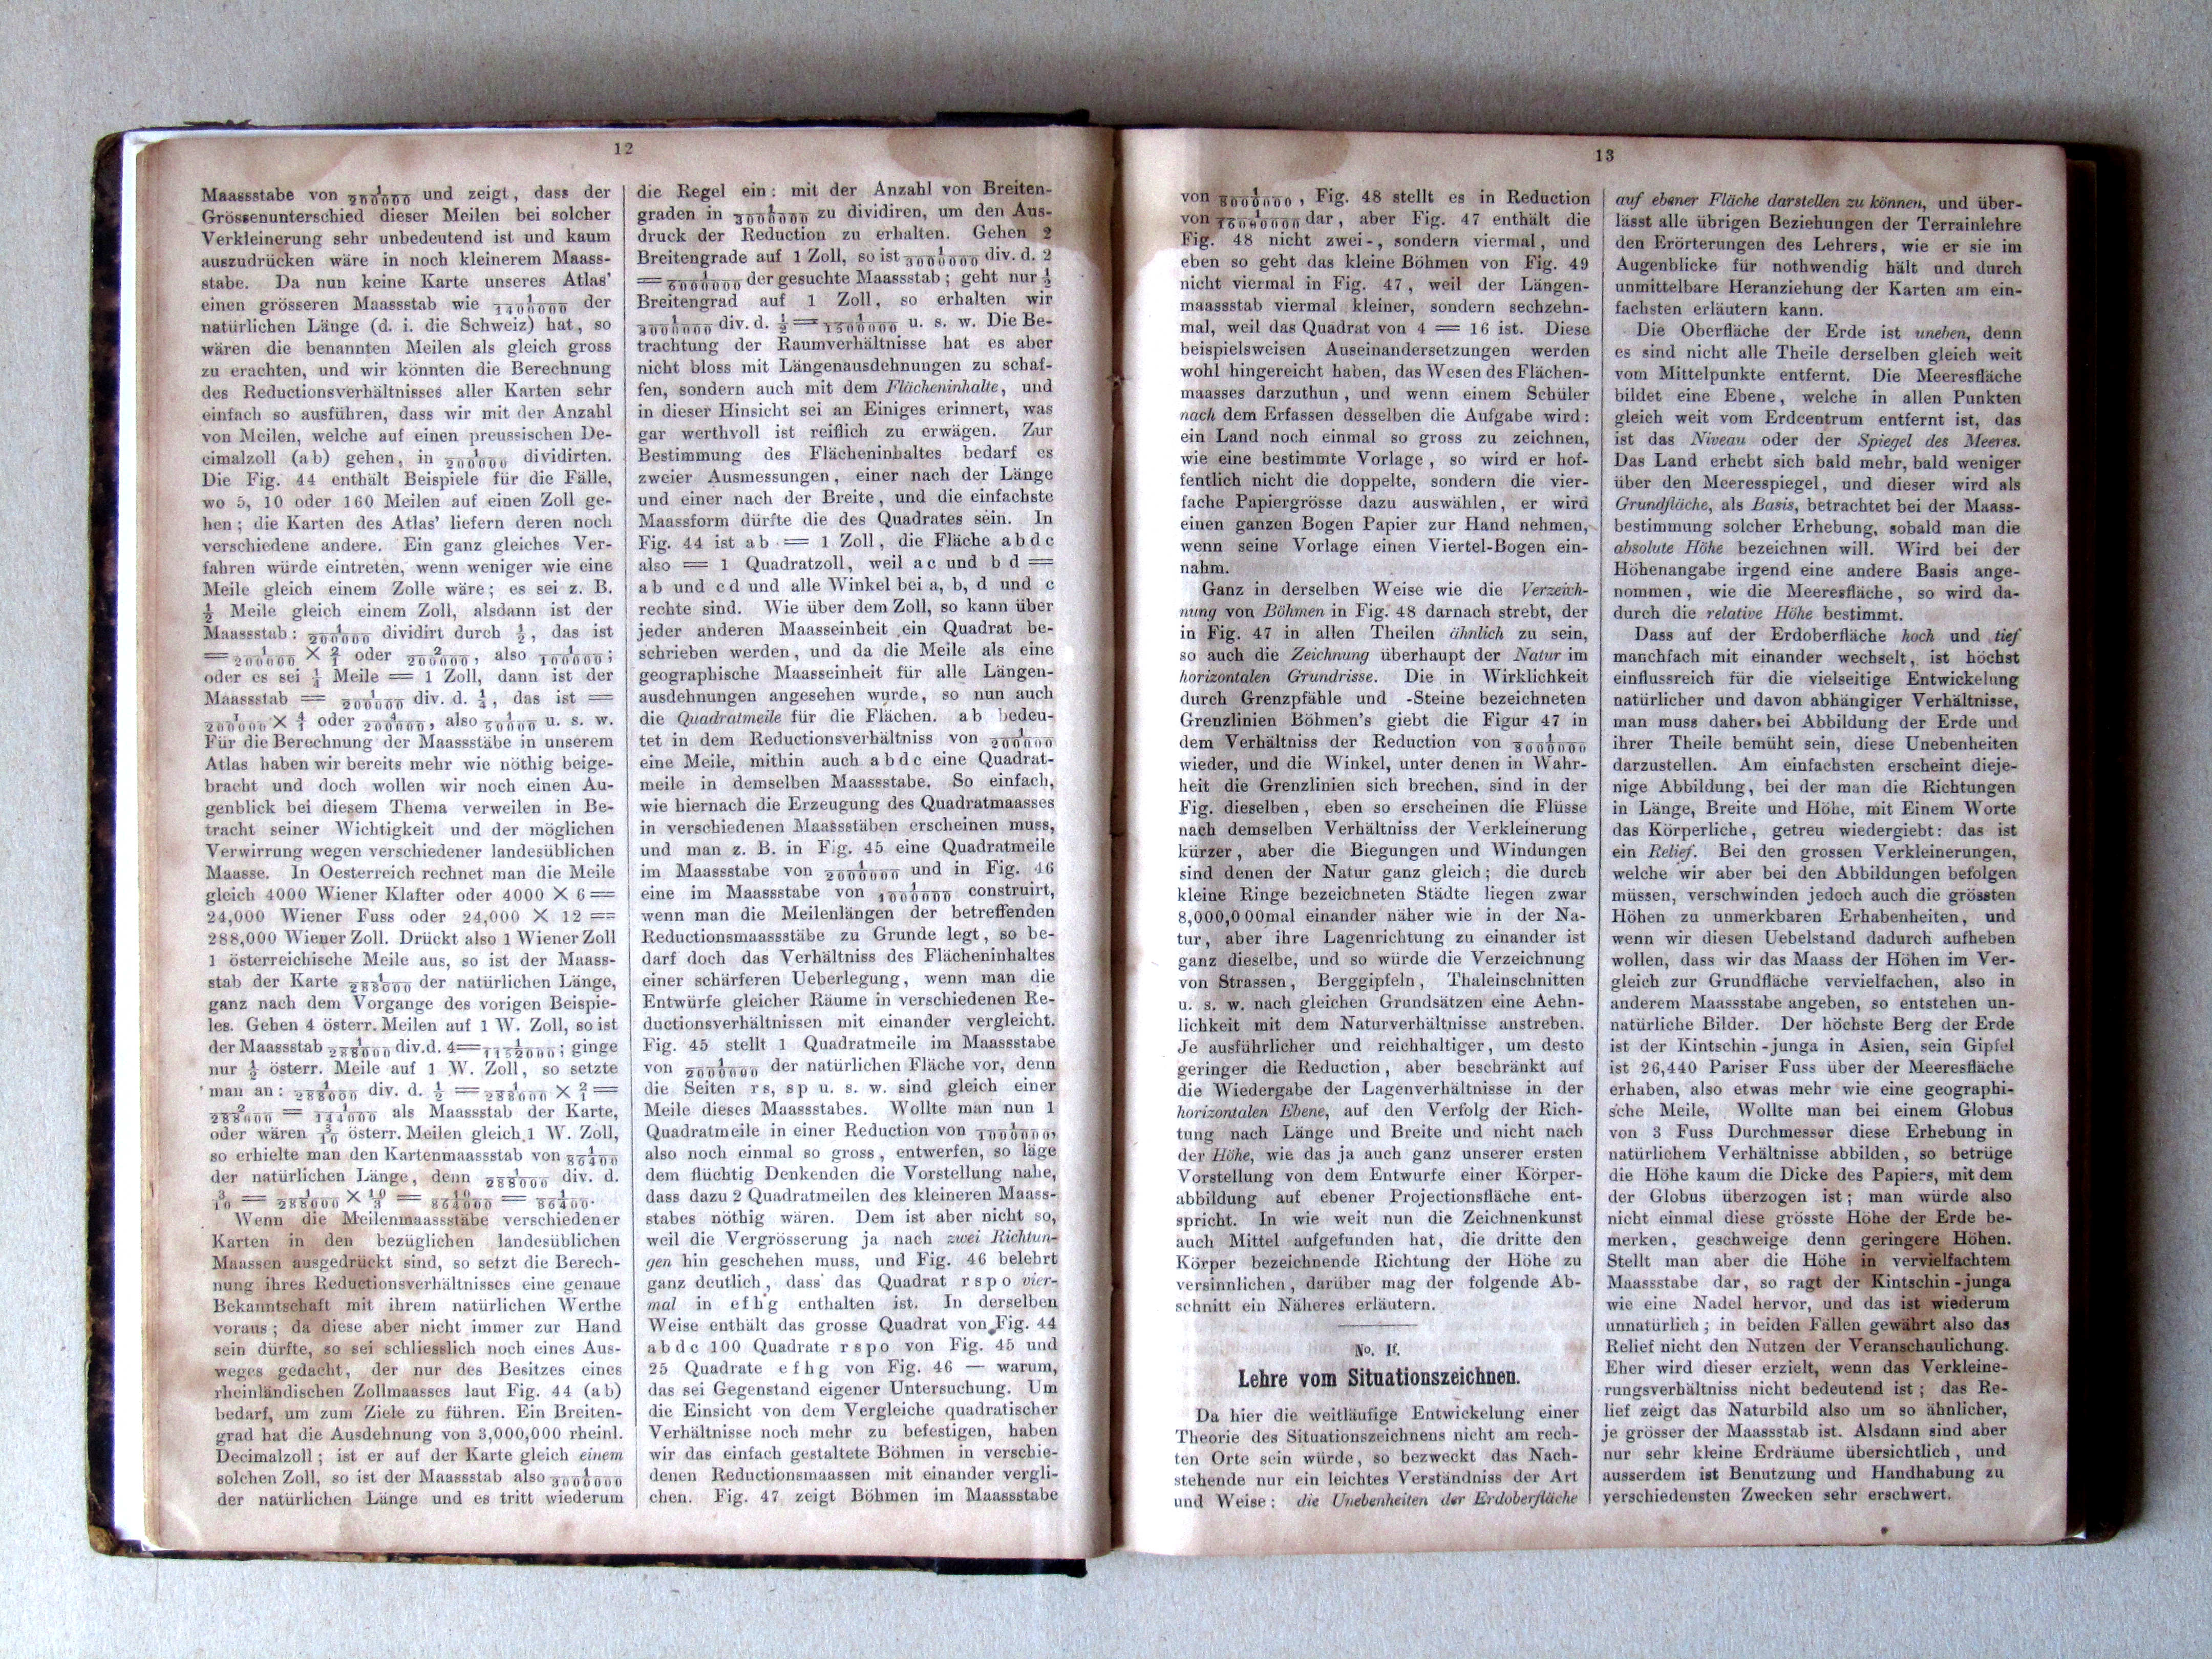 12
Maassstabe von 1/200000 und zeigt, dass der
Grössenunterschied dieser Meilen bei solcher
Verkleinerung sehr unbedeutend ist und kaum
auszudrücken wäre in noch kleinerem Maass-
stabe. Da nun keine Karte unseres Atlas'
einen grösseren Maassstab wie 1/1400000 der
natürlichen Länge (d. i. die Schweiz) hat, so
wären die benannten Meilen als gleich gross
zu erachten, und wir könnten die Berechnung
des Reductionsverhältnisses aller Karten sehr
einfach so ausführen, dass wir mit der Anzahl
von Meilen, welche auf einen preussischen De-
cimalzoll (ab) gehen, in 1/200000 dividirten.
Die Fig. 44 enthält Beispiele für die Fälle,
wo 5, 10 oder 160 Meilen auf einen Zoll ge-
hen; die Karten des Atlas' liefern deren noch
verschiedene andere. Ein ganz gleiches Ver-
fahren würde eintreten, wenn weniger wie eine
Meile gleich einem Zolle wäre; es sei z. B.
1/2 Meile gleich einem Zoll, alsdann ist der
Maassstab: 1/200000 dividirt durch 1/2, das ist
= 1/200000 × 2/1 oder 2/200000, also 1/100000;
oder es sei 1/4 Meile = 1 Zoll, dann ist der
Maassstab = 1/200000 div. d. 1/4, das ist =
1/200000 × 4/1 oder 4/200000, also 1/50000 u. s. w.
Für die Berechnung der Maassstäbe in unserem
Atlas haben wir bereits mehr wie nöthig beige-
bracht und doch wollen wir noch einen Au-
genblick bei diesem Thema verweilen in Be-
tracht seiner Wichtigkeit und der möglichen
Verwirrung wegen verschiedener landesüblichen
Maasse. In Oesterreich rechnet man die Meile
gleich 4000 Wiener Klafter oder 4000 × 6 =
24,000 Wiener Fuss oder 24,000 × 12 =
288,000 Wiener Zoll. Drückt also 1 Wiener Zoll
1 österreichische Meile aus, so ist der Maass-
stab der Karte 1/288000 der natürlichen Länge,
ganz nach dem Vorgange des vorigen Beispie-
les. Gehen 4 österr. Meilen auf 1 W. Zoll, so ist
der Maassstab 1/288000 div. d. 4 = 1/1152000; ginge
nur 1/2 österr. Meile auf 1 W. Zoll, so setzte
man an: 1/288000 div. d. 1/2 = 1/288000 × 2/1 =
2/288000 = 1/144000 als Maassstab der Karte,
oder wären 3/10 österr. Meilen gleich 1 W. Zoll,
so erhielte man den Kartenmaassstab von 1/86400
der natürlichen Länge, denn 1/288000 div. d.
3/10 = 1/288000 × 10/3 = 10/864000 = 1/86400.
Wenn die Meilenmaassstäbe verschiedener
Karten in den bezüglichen landesüblichen
Maassen ausgedrückt sind, so setzt die Berech-
nung ihres Reductionsverhältnisses eine genaue
Bekanntschaft mit ihrem natürlichen Werthe
voraus; da diese aber nicht immer zur Hand
sein dürfte, so sei schliesslich noch eines Aus-
weges gedacht, der nur des Besitzes eines
rheinländischen Zollmaasses laut Fig. 44 (ab)
bedarf, um zum Ziele zu führen. Ein Breiten-
grad hat die Ausdehnung von 3,000,000 rheinl.
Decimalzoll; ist er auf der Karte gleich einem
solchen Zoll, so ist der Maassstab also 1/3000000
der natürlichen Länge und es tritt wiederum
die Regel ein: mit der Anzahl von Breiten-
graden in 1/3000000 zu dividiren, um den Aus-
druck der Reduction zu erhalten. Gehen 2
Breitengrade auf 1 Zoll, so ist 1/3000000 div. d. 2
= 1/6000000 der gesuchte Maassstab; geht nur 1/2
Breitengrad auf 1 Zoll, so erhalten wir
1/3000000 div. d. 1/2 = 1/1500000 u. s. w. Die Be-
trachtung der Raumverhältnisse hat es aber
nicht bloss mit Längenausdehnungen zu schaf-
fen, sondern auch mit dem Flächeninhalte, und
in dieser Hinsicht sei an Einiges erinnert, was
gar werthvoll ist reiflich zu erwägen. Zur
Bestimmung des Flächeninhaltes bedarf es
zweier Ausmessungen, einer nach der Länge
und einer nach der Breite, und die einfachste
Maassform dürfte die des Quadrates sein. In
Fig. 44 ist ab = 1 Zoll, die Fläche abdc
also = 1 Quadratzoll, weil ac und bd =
ab und cd und alle Winkel bei a, b, d und c
rechte sind. Wie über dem Zoll, so kann über
jeder anderen Maasseinheit ein Quadrat be-
schrieben werden, und da die Meile als eine
geographische Maasseinheit für alle Längen-
ausdehnungen angesehen wurde, so nun auch
die Quadratmeile für die Flächen. ab bedeu-
tet in dem Reductionsverhältniss von 1/200000
eine Meile, mithin auch abdc eine Quadrat-
meile in demselben Maassstabe. So einfach,
wie hiernach die Erzeugung des Quadratmaasses
in verschiedenen Maassstäben erscheinen muss,
und man z. B. in Fig. 45 eine Quadratmeile
im Maassstabe von 1/2000000 und in Fig. 46
eine im Maassstabe von 1/1000000 construirt,
wenn man die Meilenlängen der betreffenden
Reductionsmaassstäbe zu Grunde legt, so be-
darf doch das Verhältniss des Flächeninhaltes
einer schärferen Ueberlegung, wenn man die
Entwürfe gleicher Räume in verschiedenen Re-
ductionsverhältnissen mit einander vergleicht.
Fig. 45 stellt 1 Quadratmeile im Maassstabe
von 1/2000000 der natürlichen Fläche vor, denn
die Seiten rs, sp u. s. w. sind gleich einer
Meile dieses Maassstabes. Wollte man nun 1
Quadratmeile in einer Reduction von 1/1000000,
also noch einmal so gross, entwerfen, so läge
dem flüchtig Denkenden die Vorstellung nahe,
dass dazu 2 Quadratmeilen des kleineren Maass-
stabes nöthig wären. Dem ist aber nicht so,
weil die Vergrösserung ja nach zwei Richtun-
gen hin geschehen muss, und Fig. 46 belehrt
ganz deutlich, dass das Quadrat rspo vier-
mal in efhg enthalten ist. In derselben
Weise enthält das grosse Quadrat von Fig. 44
abdc 100 Quadrate rspo von Fig. 45 und
25 Quadrate efhg von Fig. 46 — warum,
das sei Gegenstand eigener Untersuchung. Um
die Einsicht von dem Vergleiche quadratischer
Verhältnisse noch mehr zu befestigen, haben
wir das einfach gestaltete Böhmen in verschie-
denen Reductionsmaassen mit einander vergli-
chen. Fig. 47 zeigt Böhmen im Maassstabe
13
von 1/8000000, Fig. 48 stellt es in Reduction
von 1/16000000 dar, aber Fig. 47 enthält die
Fig. 48 nicht zwei-, sondern viermal, und
eben so geht das kleine Böhmen von Fig. 49
nicht viermal in Fig. 47, weil der Längen-
maassstab viermal kleiner, sondern sechzehn-
mal, weil das Quadrat von 4 = 16 ist. Diese
beispielsweisen Auseinandersetzungen werden
wohl hingereicht haben, das Wesen des Flächen-
maasses darzuthun, und wenn einem Schüler
nach dem Erfassen desselben die Aufgabe wird:
ein Land noch einmal so gross zu zeichnen,
wie eine bestimmte Vorlage, so wird er hof-
fentlich nicht die doppelte, sondern die vier-
fache Papiergrösse dazu auswählen, er wird
einen ganzen Bogen Papier zur Hand nehmen,
wenn seine Vorlage einen Viertel-Bogen ein-
nahm.
Ganz in derselben Weise wie die Verzeich-
nung von Böhmen in Fig. 48 darnach strebt, der
in Fig. 47 in allen Theilen ähnlich zu sein,
so auch die Zeichnung überhaupt der Natur im
horizontalen Grundrisse. Die in Wirklichkeit
durch Grenzpfähle und -Steine bezeichneten
Grenzlinien Böhmen's giebt die Figur 47 in
dem Verhältniss der Reduction von 1/8000000
wieder, und die Winkel, unter denen in Wahr-
heit die Grenzlinien sich brechen, sind in der
Fig. dieselben, eben so erscheinen die Flüsse
nach demselben Verhältniss der Verkleinerung
kürzer, aber die Biegungen und Windungen
sind denen der Natur ganz gleich; die durch
kleine Ringe bezeichneten Städte liegen zwar
8,000,000mal einander näher wie in der Na-
tur, aber ihre Lagenrichtung zu einander ist
ganz dieselbe, und so würde die Verzeichnung
von Strassen, Berggipfeln, Thaleinschnitten
u. s. w. nach gleichen Grundsätzen eine Aehn-
lichkeit mit dem Naturverhältnisse anstreben.
Je ausführlicher und reichhaltiger, um desto
geringer die Reduction, aber beschränkt auf
die Wiedergabe der Lagenverhältnisse in der
horizontalen Ebene, auf den Verfolg der Rich-
tung nach Länge und Breite und nicht nach
der Höhe, wie das ja auch ganz unserer ersten
Vorstellung von dem Entwurfe einer Körper-
abbildung auf ebener Projectionsfläche ent-
spricht. In wie weit nun die Zeichnenkunst
auch Mittel aufgefunden hat, die dritte den
Körper bezeichnende Richtung der Höhe zu
versinnlichen, darüber mag der folgende Ab-
schnitt ein Näheres erläutern.
No. If.
Lehre vom Situationszeichnen.
Da hier die weitläufige Entwickelung einer
Theorie des Situationszeichnens nicht am rech-
ten Orte sein würde, so bezweckt das Nach-
stehende nur ein leichtes Verständniss der Art
und Weise: die Unebenheiten der Erdoberfläche
auf ebener Fläche darstellen zu können, und über-
lässt alle übrigen Beziehungen der Terrainlehre
den Erörterungen des Lehrers, wie er sie im
Augenblicke für nothwendig hält und durch
unmittelbare Heranziehung der Karten am ein-
fachsten erläutern kann.
Die Oberfläche der Erde ist uneben, denn
es sind nicht alle Theile derselben gleich weit
vom Mittelpunkte entfernt. Die Meeresfläche
bildet eine Ebene, welche in allen Punkten
gleich weit vom Erdcentrum entfernt ist, das
ist das Niveau oder der Spiegel des Meeres.
Das Land erhebt sich bald mehr, bald weniger
über den Meeresspiegel, und dieser wird als
Grundfläche, als Basis, betrachtet bei der Maass-
bestimmung solcher Erhebung, sobald man die
absolute Höhe bezeichnen will. Wird bei der
Höhenangabe irgend eine andere Basis ange-
nommen, wie die Meeresfläche, so wird da-
durch die relative Höhe bestimmt.
Dass auf der Erdoberfläche hoch und tief
manchfach mit einander wechselt, ist höchst
einflussreich für die vielseitige Entwickelung
natürlicher und davon abhängiger Verhältnisse,
man muss daher bei Abbildung der Erde und
ihrer Theile bemüht sein, diese Unebenheiten
darzustellen. Am einfachsten erscheint dieje-
nige Abbildung, bei der man die Richtungen
in Länge, Breite und Höhe, mit Einem Worte
das Körperliche, getreu wiedergiebt: das ist
ein Relief. Bei den grossen Verkleinerungen,
welche wir aber bei den Abbildungen befolgen
müssen, verschwinden jedoch auch die grössten
Höhen zu unmerkbaren Erhabenheiten, und
wenn wir diesen Uebelstand dadurch aufheben
wollen, dass wir das Maass der Höhen im Ver-
gleich zur Grundfläche vervielfachen, also in
anderem Maassstabe angeben, so entstehen un-
natürliche Bilder. Der höchste Berg der Erde
ist der Kintschin-junga in Asien, sein Gipfel
ist 26,440 Pariser Fuss über der Meeresfläche
erhaben, also etwas mehr wie eine geographi-
sche Meile, Wollte man bei einem Globus
von 3 Fuss Durchmesser diese Erhebung in
natürlichem Verhältnisse abbilden, so betrüge
die Höhe kaum die Dicke des Papiers, mit dem
der Globus überzogen ist; man würde also
nicht einmal diese grösste Höhe der Erde be-
merken, geschweige denn geringere Höhen.
Stellt man aber die Höhe in vervielfachtem
Maassstabe dar, so ragt der Kintschin-junga
wie eine Nadel hervor, und das ist wiederum
unnatürlich; in beiden Fällen gewährt also das
Relief nicht den Nutzen der Veranschaulichung.
Eher wird dieser erzielt, wenn das Verkleine-
rungsverhältniss nicht bedeutend ist; das Re-
lief zeigt das Naturbild also um so ähnlicher,
je grösser der Maassstab ist. Alsdann sind aber
nur sehr kleine Erdräume übersichtlich, und
ausserdem ist Benutzung und Handhabung zu
verschiedensten Zwecken sehr erschwert.